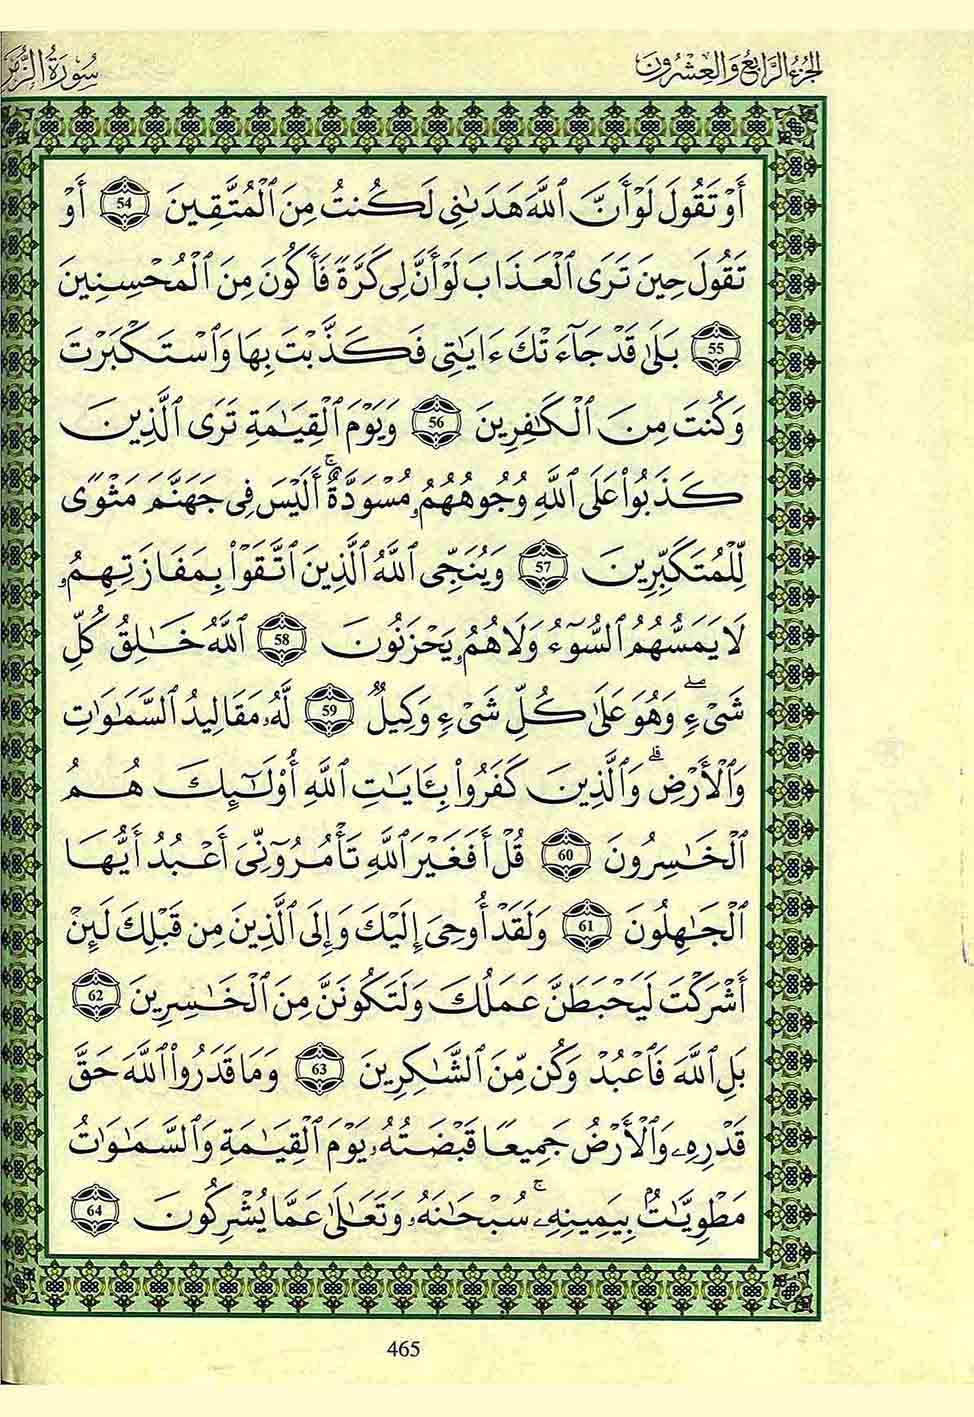 الجزء الرابع والعشرون
سورة الزمر
أَوْ تَقُولَ لَوْ أَنَّ ٱللَّهَ هَدَىٰنِى لَكُنتُ مِنَ ٱلْمُتَّقِينَ 54 أَوْ
تَقُولَ حِينَ تَرَى ٱلْعَذَابَ لَوْ أَنَّ لِى كَرَّةً فَأَكُونَ مِنَ ٱلْمُحْسِنِينَ
55 بَلَىٰ قَدْ جَآءَتْكَ ءَايَٰتِى فَكَذَّبْتَ بِهَا وَٱسْتَكْبَرْتَ
وَكُنتَ مِنَ ٱلْكَٰفِرِينَ 56 وَيَوْمَ ٱلْقِيَٰمَةِ تَرَى ٱلَّذِينَ
كَذَبُوا۟ عَلَى ٱللَّهِ وُجُوهُهُمُۥ مُسْوَدَّةٌ ۚ أَلَيْسَ فِى جَهَنَّمَ مَثْوًى
لِّلْمُتَكَبِّرِينَ 57 وَيُنَجِّى ٱللَّهُ ٱلَّذِينَ ٱتَّقَوْا۟ بِمَفَازَتِهِمُۥ
لَا يَمَسُّهُمُ ٱلسُّوٓءُ وَلَا هُمُۥ يَحْزَنُونَ 58 ٱللَّهُ خَٰلِقُ كُلِّ
شَىْءٍ ۖ وَهُوَ عَلَىٰ كُلِّ شَىْءٍ وَكِيلٌ 59 لَّهُۥ مَقَالِيدُ ٱلسَّمَٰوَٰتِ
وَٱلْأَرْضِ ۗ وَٱلَّذِينَ كَفَرُوا۟ بِـَٔايَٰتِ ٱللَّهِ أُو۟لَٰٓئِكَ هُمُ
ٱلْخَٰسِرُونَ 60 قُلْ أَفَغَيْرَ ٱللَّهِ تَأْمُرُوٓنِّىَ أَعْبُدُ أَيُّهَا
ٱلْجَٰهِلُونَ 61 وَلَقَدْ أُوحِىَ إِلَيْكَ وَإِلَى ٱلَّذِينَ مِن قَبْلِكَ لَئِنْ
أَشْرَكْتَ لَيَحْبَطَنَّ عَمَلُكَ وَلَتَكُونَنَّ مِنَ ٱلْخَٰسِرِينَ 62
بَلِ ٱللَّهَ فَٱعْبُدْ وَكُن مِّنَ ٱلشَّٰكِرِينَ 63 وَمَا قَدَرُوا۟ ٱللَّهَ حَقَّ
قَدْرِهِۦ وَٱلْأَرْضُ جَمِيعًا قَبْضَتُهُۥ يَوْمَ ٱلْقِيَٰمَةِ وَٱلسَّمَٰوَٰتُ
مَطْوِيَّٰتٌۢ بِيَمِينِهِۦ ۚ سُبْحَٰنَهُۥ وَتَعَٰلَىٰ عَمَّا يُشْرِكُونَ 64
465